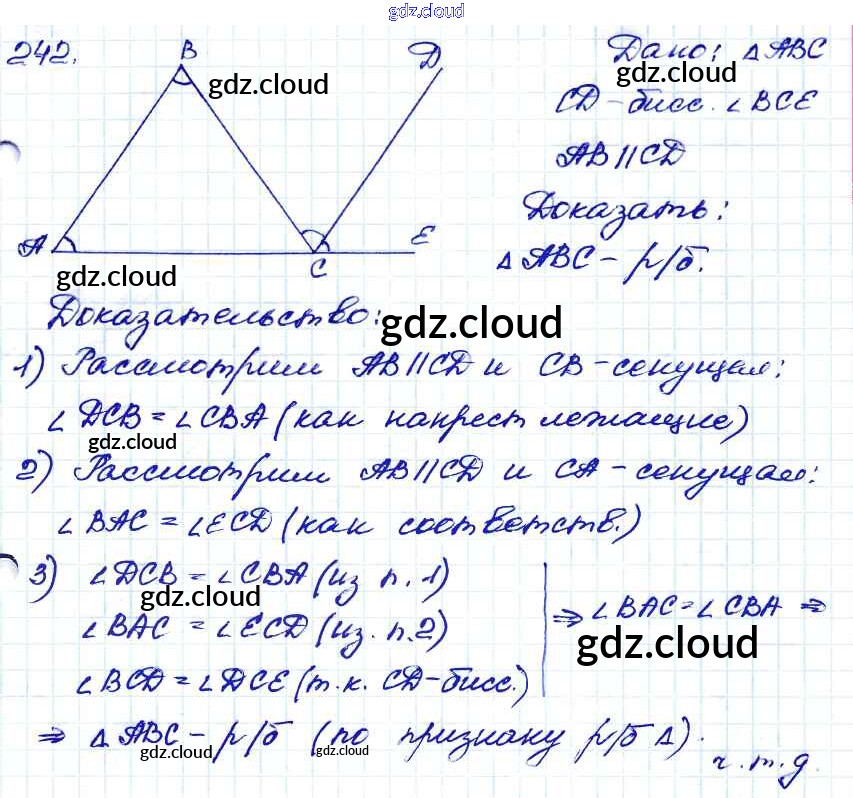 gdz.cloud
242.
B
D
A
C
E
gdz.cloud
gdz.cloud
Дано: △ABC
CD - бисс. ∠BCE
AB || CD
Доказать:
△ABC - р/б.
Доказательство:
gdz.cloud
1) Рассмотрим AB || CD и CB - секущая:
∠DCB = ∠CBA (как накрест лежащие)
gdz.cloud
2) Рассмотрим AB || CD и CA - секущая:
∠BAC = ∠ECD (как соответств.)
3) ∠DCB = ∠CBA (из п. 1)
gdz.cloud
∠BAC = ∠ECD (из. п. 2)
∠BCD = ∠DCE (т.к. CD - бисс.)
⇒ ∠BAC = ∠CBA ⇒
gdz.cloud
⇒ △ABC - р/б (по признаку р/б △).
gdz.cloud
gdz.cloud
ч.т.д.